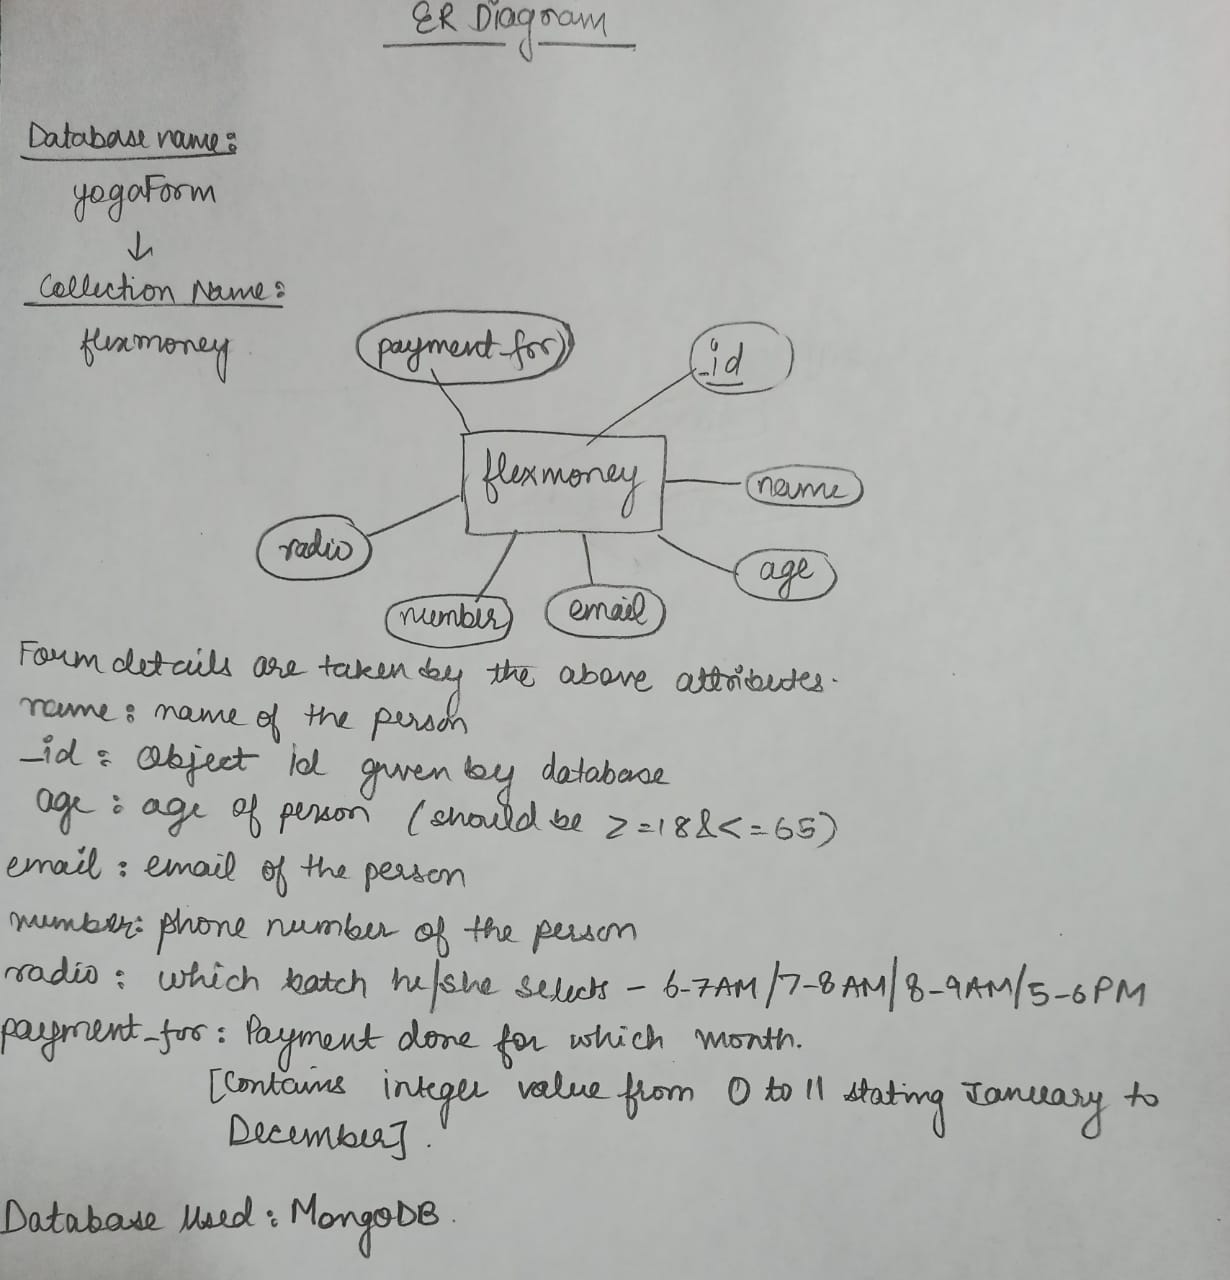 ER Diagram
Database name:
yogaForm
↓
Collection Name:
flexmoney
payment_for
_id
flexmoney
name
radio
age
number
email
Form details are taken by the above attributes.
name: name of the person
_id: Object id given by database
age: age of person (should be >=18 & <=65)
email: email of the person
number: phone number of the person
radio: which batch he/she selects - 6-7AM/7-8AM/8-9AM/5-6PM
payment_for: Payment done for which month.
[Contains integer value from 0 to 11 stating January to
December].
Database Used: MongoDB.